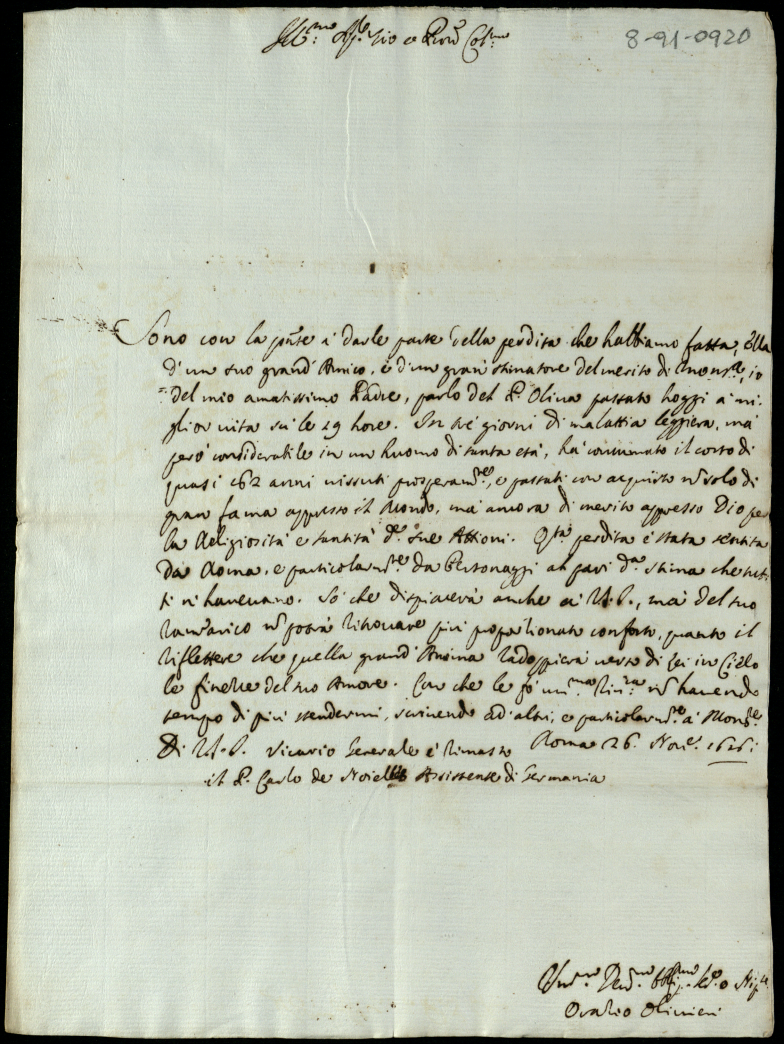 8-91-0920
Ill.mo Sig.r Zio e Pron Col.mo
Sono con la pñte à darle parte della perdita che habbiamo fatta, Ella
d'un suo grand' Amico, e d'un gran stimatore del merito di Mons.re, io
del mio amatissimo Padre, parlo del P. Oliva passato hoggi à mi
glior vita sù le 19 hore. In trè giorni di malattia leggiera, mà
però considerabile in un huomo di tanta età, hà consumato il corso di
quasi 82 anni vissuti prosperam.te, e passati con acquisto nõ solo di
gran fama appresso il Mondo, mà ancora di merito appresso Dio per
la Religiosità e santità d.e sue Attioni. Q.ta perdita è stata sentita
da Roma, e particolarm.te da Personaggi al pari d.a stima che tut
ti n'havevano. Sò che dispiacerà anche à V.S., mà del suo
ramarico nõ potrà ritrovare più proportionato conforto, quanto il
riflettere che quella grand' Anima radoppierà verso di Lei in Cielo
le finezze del suo Amore. Con che le fò um.ma riv.za nõ havendo
tempo di più stendermi, scrivendo ad altri, e particolarm.te à Mons.re
Di V.S. Vicario Generale è rimasto Roma 26. Nov.e
il P. Carlo de Noielles Assistente di Germania
Um.mo Dev.mo Obl.mo Se.re e Nip.te
Oratio Olivieri